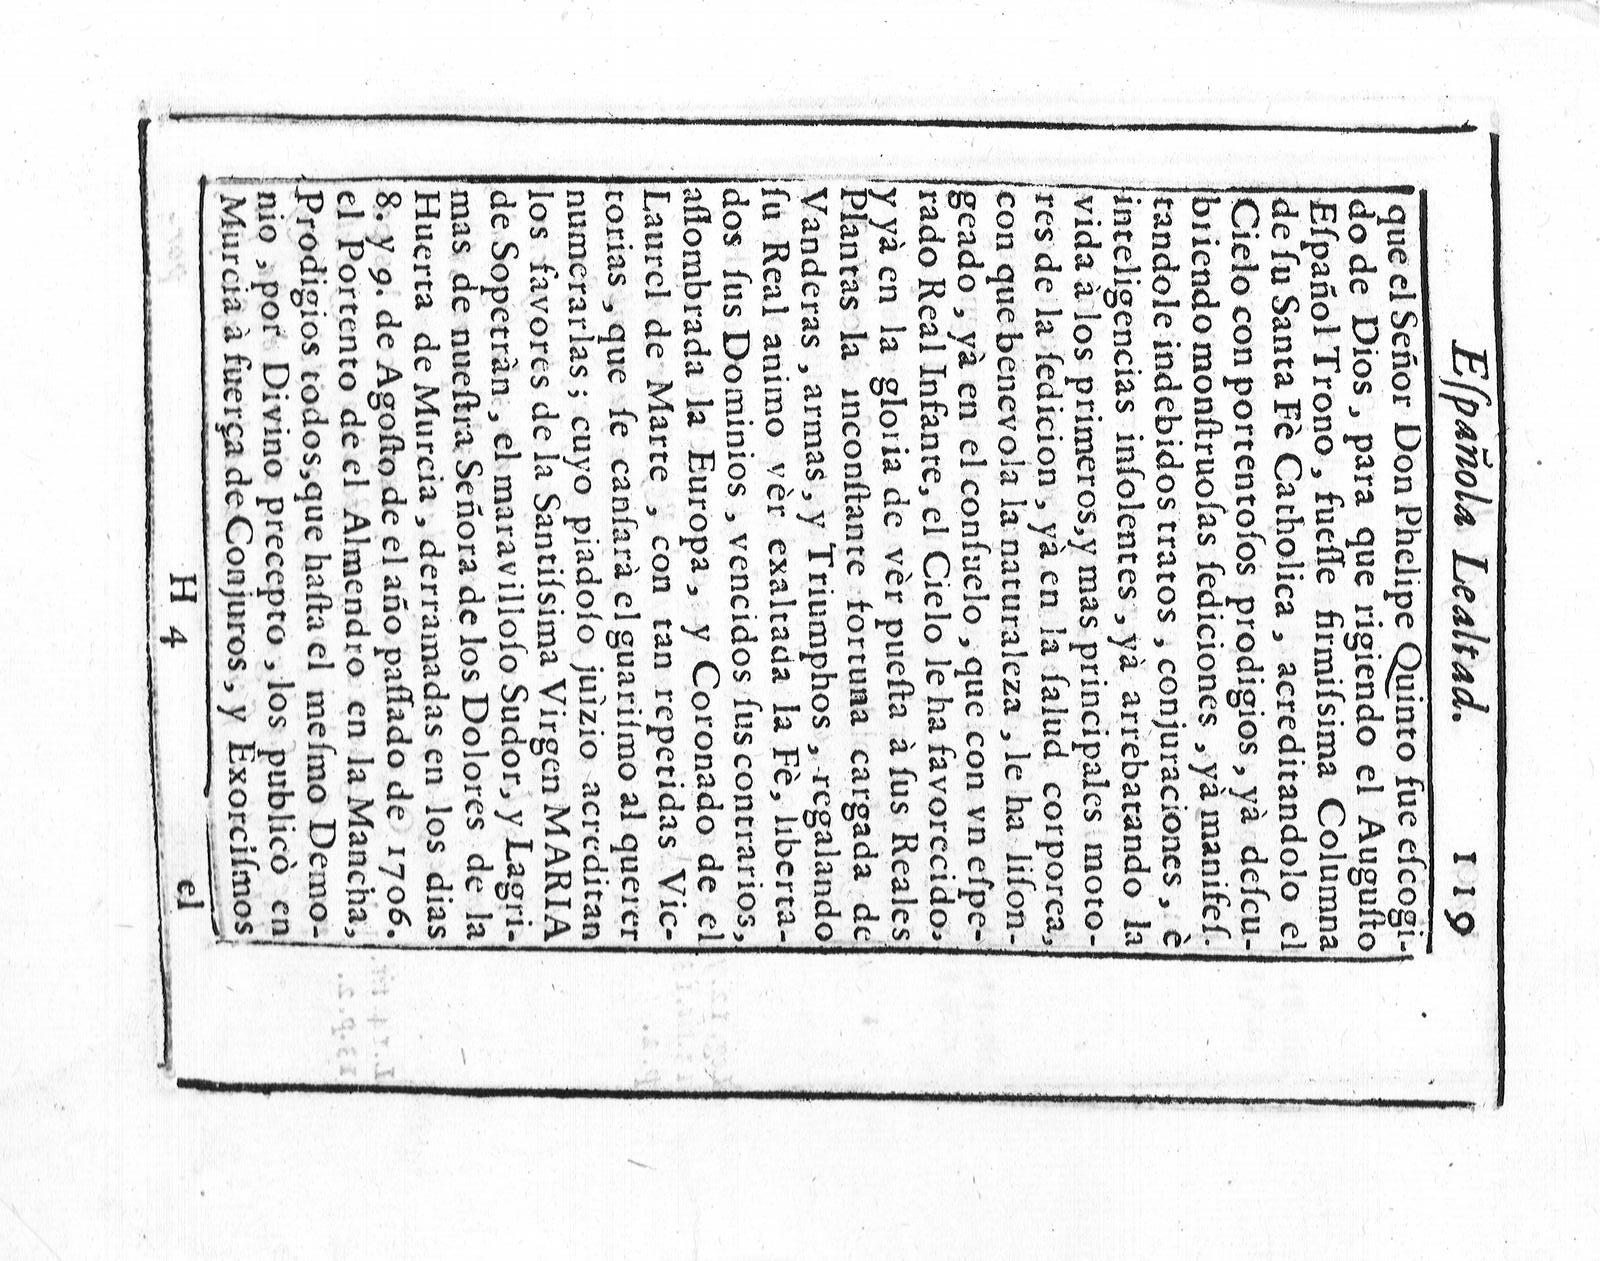 Eſpañola Lealtad. 119
que el Señor Don Phelipe Quinto fue eſcogi-
do de Dios, para que rigiendo el Auguſto
Eſpañol Trono, fueſſe firmiſsima Columna
de ſu Santa Fè Catholica, acreditandolo el
Cielo con portentoſos prodigios, yà deſcu-
briendo monſtruoſas ſediciones, yà manifeſ-
tandole indebidos tratos, conjuraciones, è
inteligencias inſolentes, yà arrebatando la
vida à los primeros, y mas principales moto-
res de la ſedicion, yà en la ſalud corporea,
con que benevola la naturaleza, le ha liſon-
geado, yà en el conſuelo, que con vn eſpe-
rado Real Infante, el Cielo le ha favorecido,
y yà en la gloria de vèr pueſta à ſus Reales
Plantas la inconſtante fortuna cargada de
Vanderas, armas, y Triumphos, regalando
ſu Real animo vèr exaltada la Fè, liberta-
dos ſus Dominios, vencidos ſus contrarios,
aſſombrada la Europa, y Coronado de el
Laurel de Marte, con tan repetidas Vic-
torias, que ſe canſarà el guariſmo al querer
numerarlas; cuyo piadoſo juìzio acreditan
los favores de la Santiſsima Virgen MARIA
de Sopetràn, el maravilloſo Sudor, y Lagri-
mas de nueſtra Señora de los Dolores de la
Huerta de Murcia, derramadas en los dias
8. y 9. de Agoſto de el año paſſado de 1706.
el Portento de el Almendro en la Mancha,
Prodigios todos, que haſta el meſmo Demo-
nio, por Divino precepto, los publicò en
Murcia à fuerça de Conjuros, y Exorciſmos
H 4 el